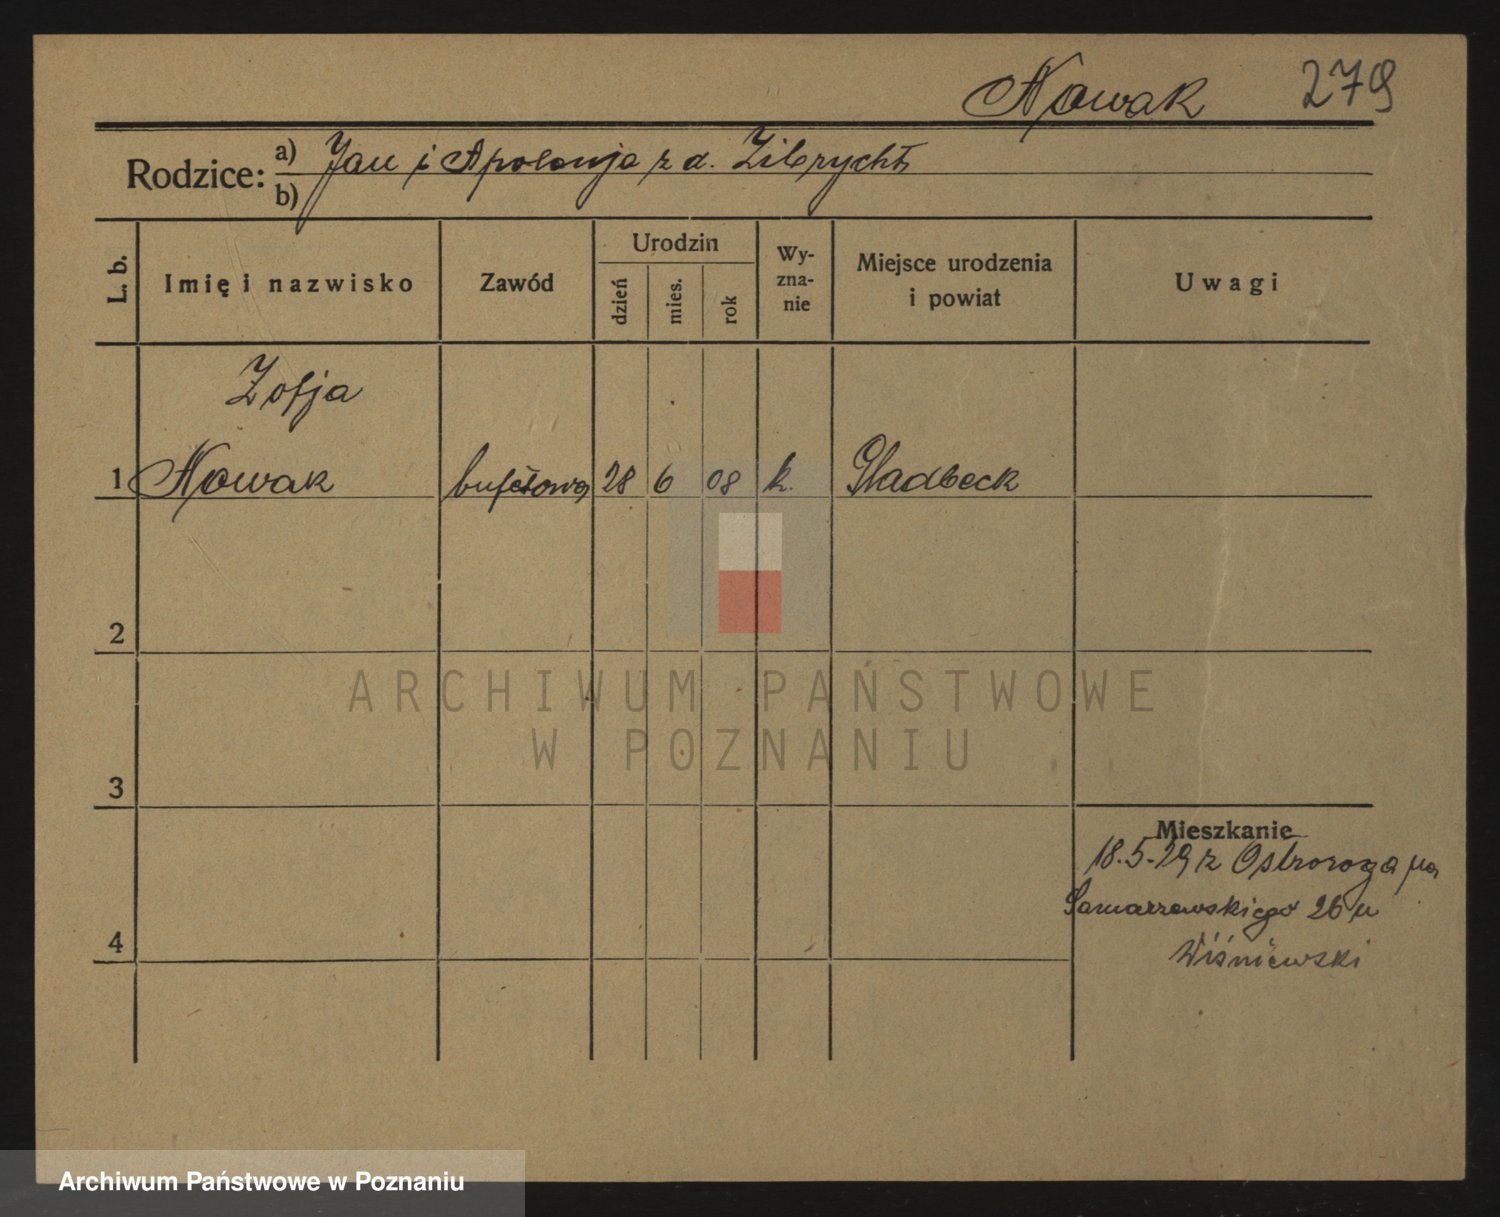 Nowak 279
Rodzice: a) Jan i Apolonja z d. Zibrycht
b)
L. b.
Imię i nazwisko
Zawód
Urodzin
dzień
mies.
rok
Wy-
zna-
nie
Miejsce urodzenia
i powiat
Uwagi
Zofja
1 Nowak bufetowa 28 6 08 k. Gladbeck
2
3
4
Mieszkanie
18.5.29 z Ostroroga na
Samarzewskiego 26 u
Wiśniewski
ARCHIWUM PAŃSTWOWE
W POZNANIU
Archiwum Państwowe w Poznaniu